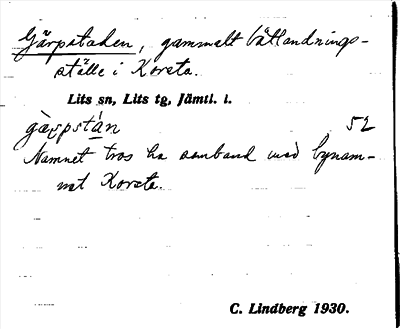 Gärpstaden, gammalt båtlandnings-
ställe i Korsta.
Lits sn, Lits tg, Jämtl. l.
gärpstán 52
Namnet tros ha samband med bynam-
net Korsta.
C. Lindberg 1930.